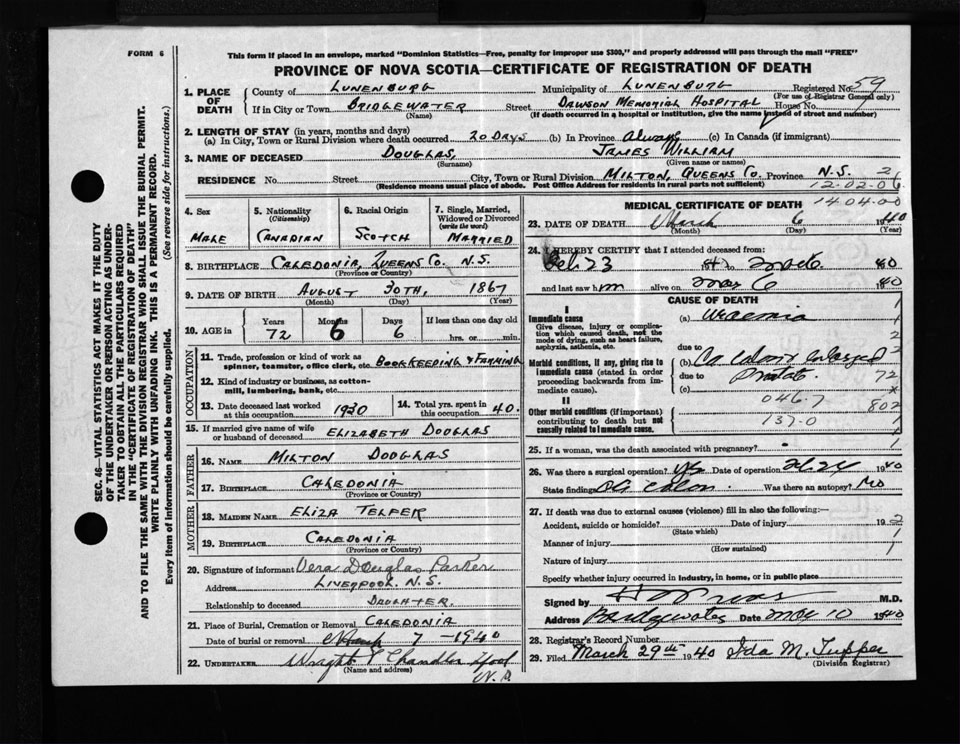 FORM 6
This form if placed in an envelope, marked "Dominion Statistics—Free, penalty for improper use $300," and properly addressed will pass through the mail "FREE"
PROVINCE OF NOVA SCOTIA—CERTIFICATE OF REGISTRATION OF DEATH
SEC. 46—VITAL STATISTICS ACT MAKES IT THE DUTY
OF THE UNDERTAKER OR PERSON ACTING AS UNDER-
TAKER TO OBTAIN ALL THE PARTICULARS REQUIRED
IN THE "CERTIFICATE OF REGISTRATION OF DEATH"
AND TO FILE THE SAME WITH THE DIVISION REGISTRAR WHO SHALL ISSUE THE BURIAL PERMIT.
WRITE PLAINLY WITH UNFADING INK. THIS IS A PERMANENT RECORD.
Every item of information should be carefully supplied. (See reverse side for instructions.)
1. PLACE OF DEATH
County of LUNENBURG Municipality of LUNENBURG Registered No. 59
(For use of Registrar General only)
If in City or Town BRIDGEWATER Street DAWSON MEMORIAL HOSPITAL House No.
(Name) (If death occurred in a hospital or institution, give the name instead of street and number)
2. LENGTH OF STAY (in years, months and days)
(a) In City, Town or Rural Division where death occurred 20 DAYS (b) In Province always (c) In Canada (if immigrant)
3. NAME OF DECEASED DOUGLAS, JAMES WILLIAM
(Surname) (Given name or names)
RESIDENCE No. Street City, Town or Rural Division MILTON, QUEENS CO. Province N.S. 2
(Residence means usual place of abode. Post Office Address for residents in rural parts not sufficient) 12.02.06
4. Sex MALE
5. Nationality (Citizenship) CANADIAN
6. Racial Origin SCOTCH
7. Single, Married, Widowed or Divorced (write the word) MARRIED
8. BIRTHPLACE CALEDONIA, QUEENS CO. N.S.
(Province or Country)
9. DATE OF BIRTH AUGUST 30TH, 1867
(Month) (Day) (Year)
10. AGE in Years 72 Months 6 Days 6 If less than one day old
hrs. or min.
OCCUPATION
11. Trade, profession or kind of work as
spinner, teamster, office clerk, etc. BOOKKEEPING & FARMING
12. Kind of industry or business, as cotton-
mill, lumbering, bank, etc.
13. Date deceased last worked
at this occupation 1930
14. Total yrs. spent in
this occupation 40.
15. If married give name of wife
or husband of deceased ELIZABETH DOUGLAS
FATHER
16. NAME MILTON DOUGLAS
17. BIRTHPLACE CALEDONIA
(Province or Country)
MOTHER
18. MAIDEN NAME ELIZA TELFER
19. BIRTHPLACE CALEDONIA
(Province or Country)
20. Signature of informant Vera Douglas Parker
Address LIVERPOOL. N.S.
Relationship to deceased DAUGHTER.
21. Place of Burial, Cremation or Removal CALEDONIA
Date of burial or removal March 7 - 1940
22. UNDERTAKER Wright & Chandler
(Name and address)
N.S.
MEDICAL CERTIFICATE OF DEATH 14.04.00
23. DATE OF DEATH March 6 1940
(Month) (Day) (Year)
24. I HEREBY CERTIFY that I attended deceased from:
Feb 23 to 40
and last saw him alive on Mar 6 1940
CAUSE OF DEATH
I
Immediate cause
Give disease, injury or complica-
tion which caused death, not the
mode of dying, such as heart failure,
asphyxia, asthenia, etc.
(a) uraemia 1
due to 2
Morbid conditions, if any, giving rise to
immediate cause (stated in order
proceeding backwards from im-
mediate cause).
(b) Ca Colon enlarged 3
due to Prostate 72
(c)
046.7 802
II
Other morbid conditions (if important)
contributing to death but not
causally related to immediate cause.
137.0 1
25. If a woman, was the death associated with pregnancy? 1
26. Was there a surgical operation? yes Date of operation 1940
State finding Ca Colon. Was there an autopsy? No
27. If death was due to external causes (violence) fill in also the following:—
Accident, suicide or homicide? Date of injury 19 2
(State which)
Manner of injury 1
(How sustained)
Nature of injury
Specify whether injury occurred in industry, in home, or in public place
Signed by M.D.
Address Bridgewater Date Mar 10 1940
28. Registrar's Record Number
29. Filed March 29th 1940 Ida M. Tupper
(Division Registrar)